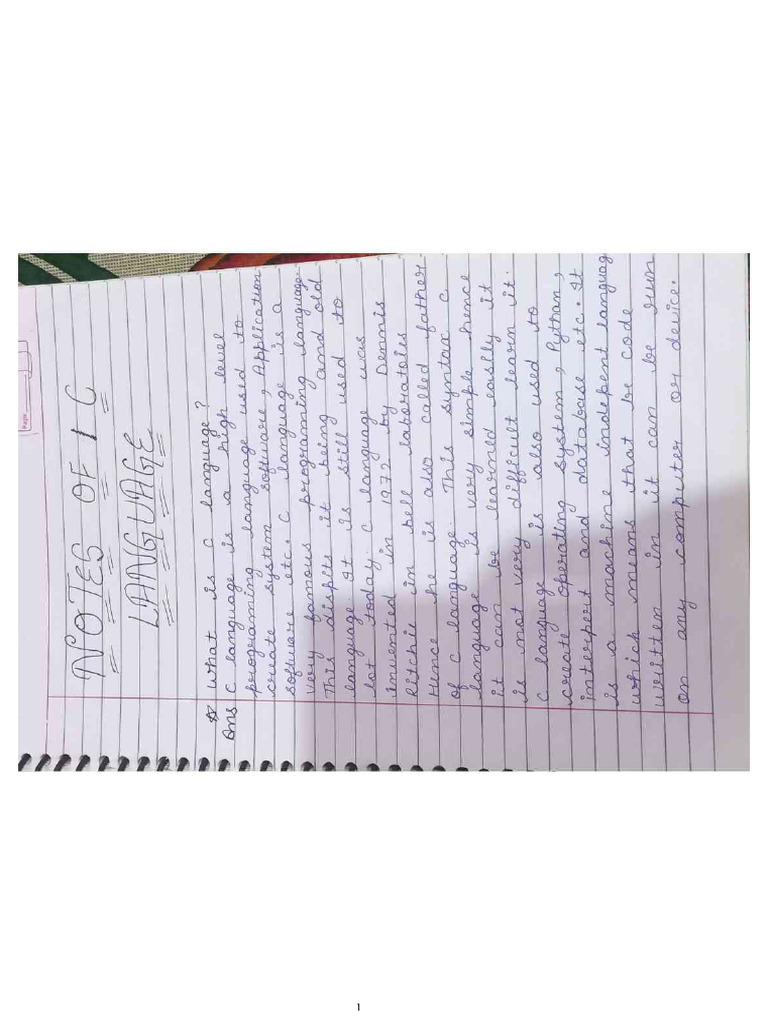 NOTES OF C
LANGUAGE
Page
☆ what is C language?
Ans C language is a high level
programing language used to
create system software, Application
software etc. C language is a
very famous programing language.
This dispits it being and old
language It is still used to
lot today. C language was
invented in 1972 by Dennis
Ritchie in bell laboratoies
Hence he is also called father
of C language. This syntax C
language is very simple hence
it can be learned easily it
is not very difficult learn it.
C language is also used to
create operating system, Pythan,
interpert and database etc. It
is a machine indepent languag
which means that be code
written in it can be run
on any computer or device.
1